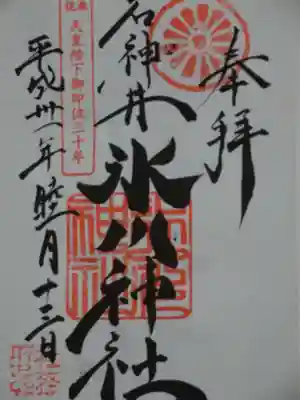 奉拝
石神井
氷川神社
奉祝
天皇陛下御即位三十年
平成卅一年睦月十三日